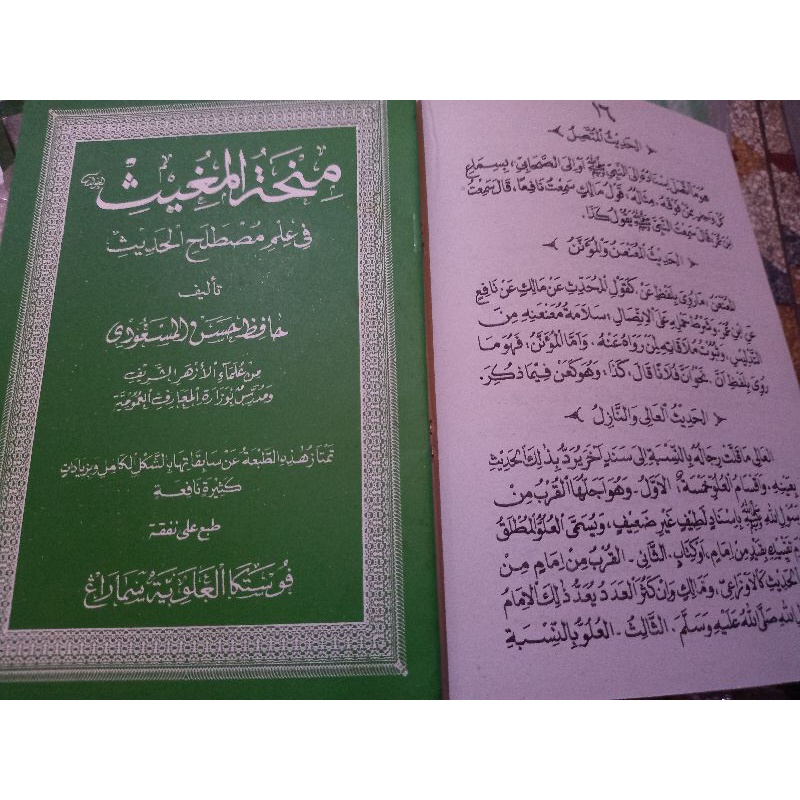 منحة المغيث
في علم مصطلح الحديث
تأليف
حافظ حسن المسعودي
من علماء الأزهر الشريف
ومدرس بوزارة المعارف العمومية
تمتاز هذه الطبعة عن سابقاتها بالشكل الكامل وبزيادات
كثيرة نافعة
طبع على نفقة
فوستكا العلوية سماراغ
١٦
الحديث المتصل
هو ما اتصل إسناده إلى النبي ﷺ أو إلى الصحابي، بسماع
كل واحد ممن فوقه. مثاله، قول مالك سمعت نافعا، قال سمعت
ابن عمر قال سمعت النبي ﷺ يقول كذا.
الحديث المعنعن والمؤنن
المعنعن، ما روي بلفظ عن، كقول المحدث عن مالك عن نافع
عن ابن عمر، وشرط حمله على الاتصال، سلامة معنعنه من
التدليس، وثبوت ملاقاته لمن رواه عنه. وأما المؤنن، فهو ما
روي بلفظ أن. نحو أن فلانا قال، كذا، وهو كعن فيما ذكر.
الحديث العالي والنازل
العالي ما قلت رجاله بالنسبة إلى سند آخر يرد بذلك الحديث
بعينه. وأقسام العلو خمسة، الأول. وهو أجلها القرب من
رسول الله ﷺ بإسناد لطيف غير ضعيف، ويسمى العلو المطلق
تقييده بقيد من إمام، أو كتاب. الثاني. القرب من إمام من
الحديث كالأوزاعي، ومالك وإن كثر العدد بعد ذلك الإمام
الله صلى الله عليه وسلم. الثالث. العلو بالنسبة